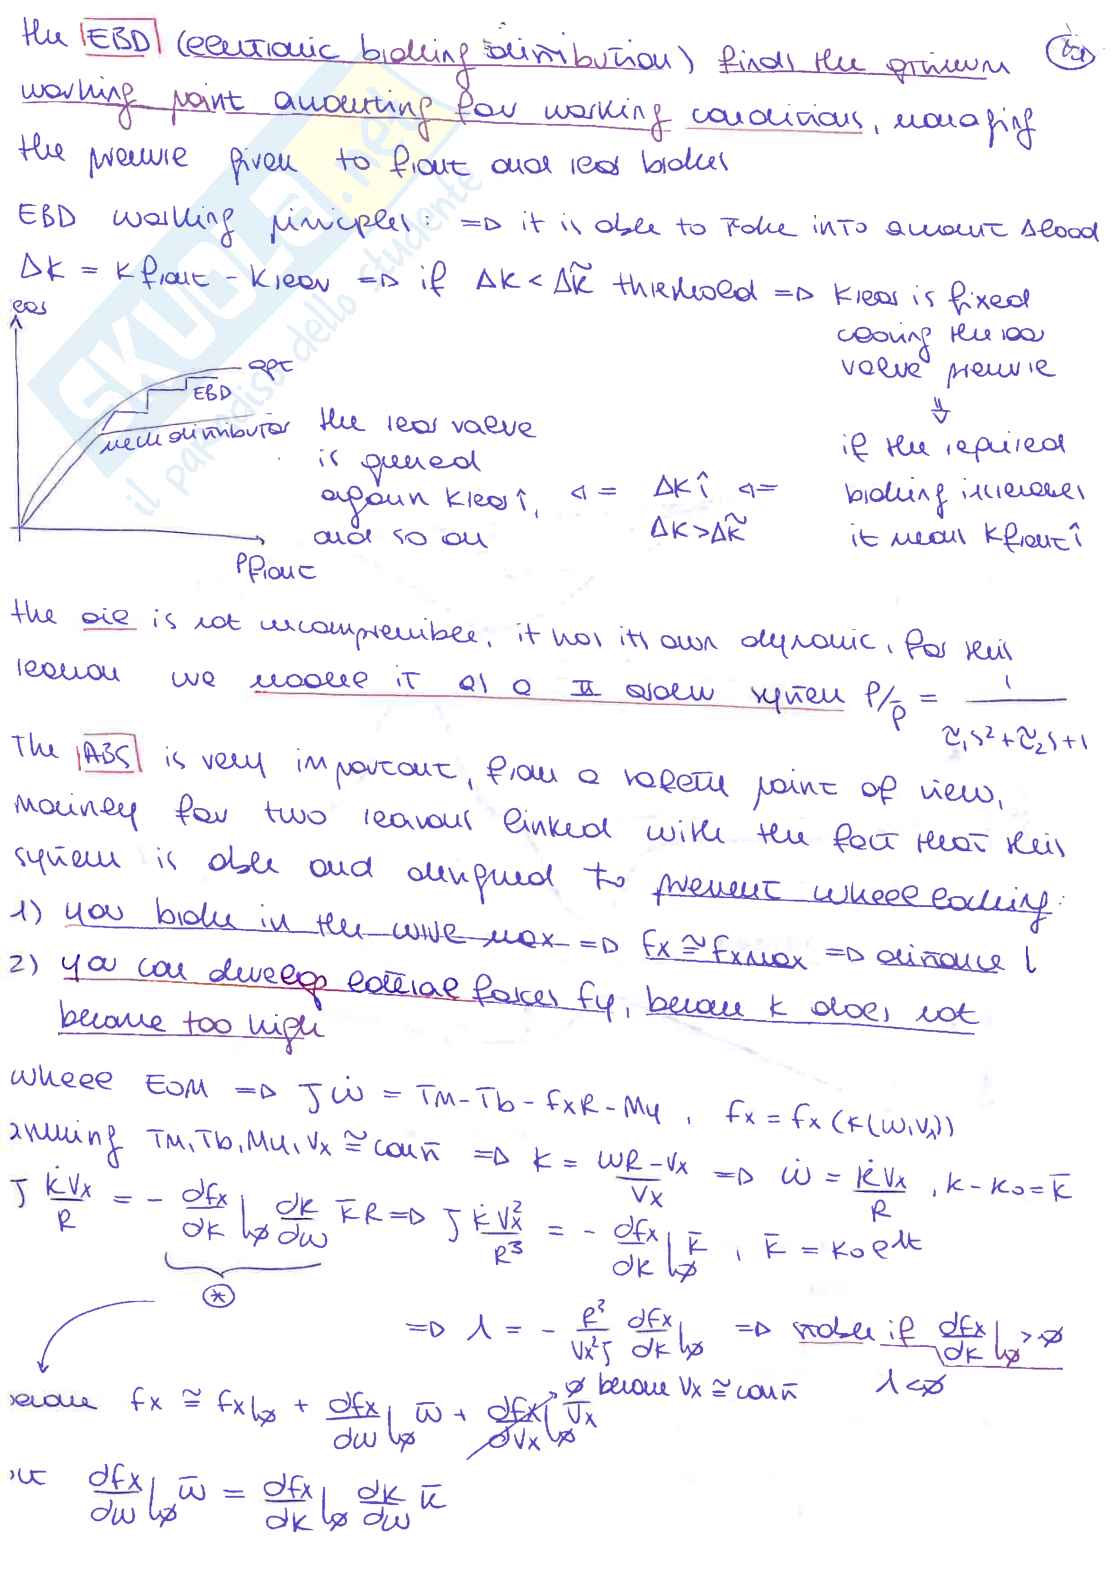 the EBD (electronic braking distribution) finds the optimum
working point accounting for working conditions, managing
the pressure given to front and rear brakes
EBD working principles: => it is able to take into account Δload
ΔK = Kfront - Krear => if ΔK < ΔK̃ threshold => Krear is fixed
closing the rear
valve pressure
⇓
if the required
braking increases
it means Kfront↑
<= ΔK↑ <=
ΔK > ΔK̃
the rear valve
is opened
again Krear↑,
and so on
rear
opt
EBD
mech distributor
Pfront
the oil is not incompressible, it has its own dynamic, for this
reason we model it as a II order system P/P̄ = 1/(τ̃₁s² + τ̃₂s + 1)
The ABS is very important, from a safety point of view,
mainly for two reasons linked with the fact that this
system is able and designed to prevent wheel locking:
1) you brake in the curve max => Fx ≅ Fxmax => distance ↓
2) you can develop lateral forces Fy, because k does not
become too high
wheel EOM => Jω̇ = Tm - Tb - FxR - My, Fx = Fx(k(ω,Vx))
assuming Tm, Tb, My, Vx ≅ const => k = (ωR - Vx)/Vx => ω̇ = k̇Vx/R, k - k0 = k̄
J k̇Vx/R = - dFx/dk|₀ dk/dω k̄ R => J k̇Vx²/R³ = - dFx/dk|₀ k̄, k̄ = k0 e^λt
⊛
=> λ = - R²/(Vx²J) dFx/dk|₀ => stable if dFx/dk|₀ > 0
λ < 0
because Fx ≅ Fx|₀ + dFx/dω|₀ ω̄ + dFx/dVx|₀ V̄x
0 because Vx ≅ const
but dFx/dω|₀ ω̄ = dFx/dk|₀ dk/dω k̄
SKUOLA.net
il paradiso dello studente